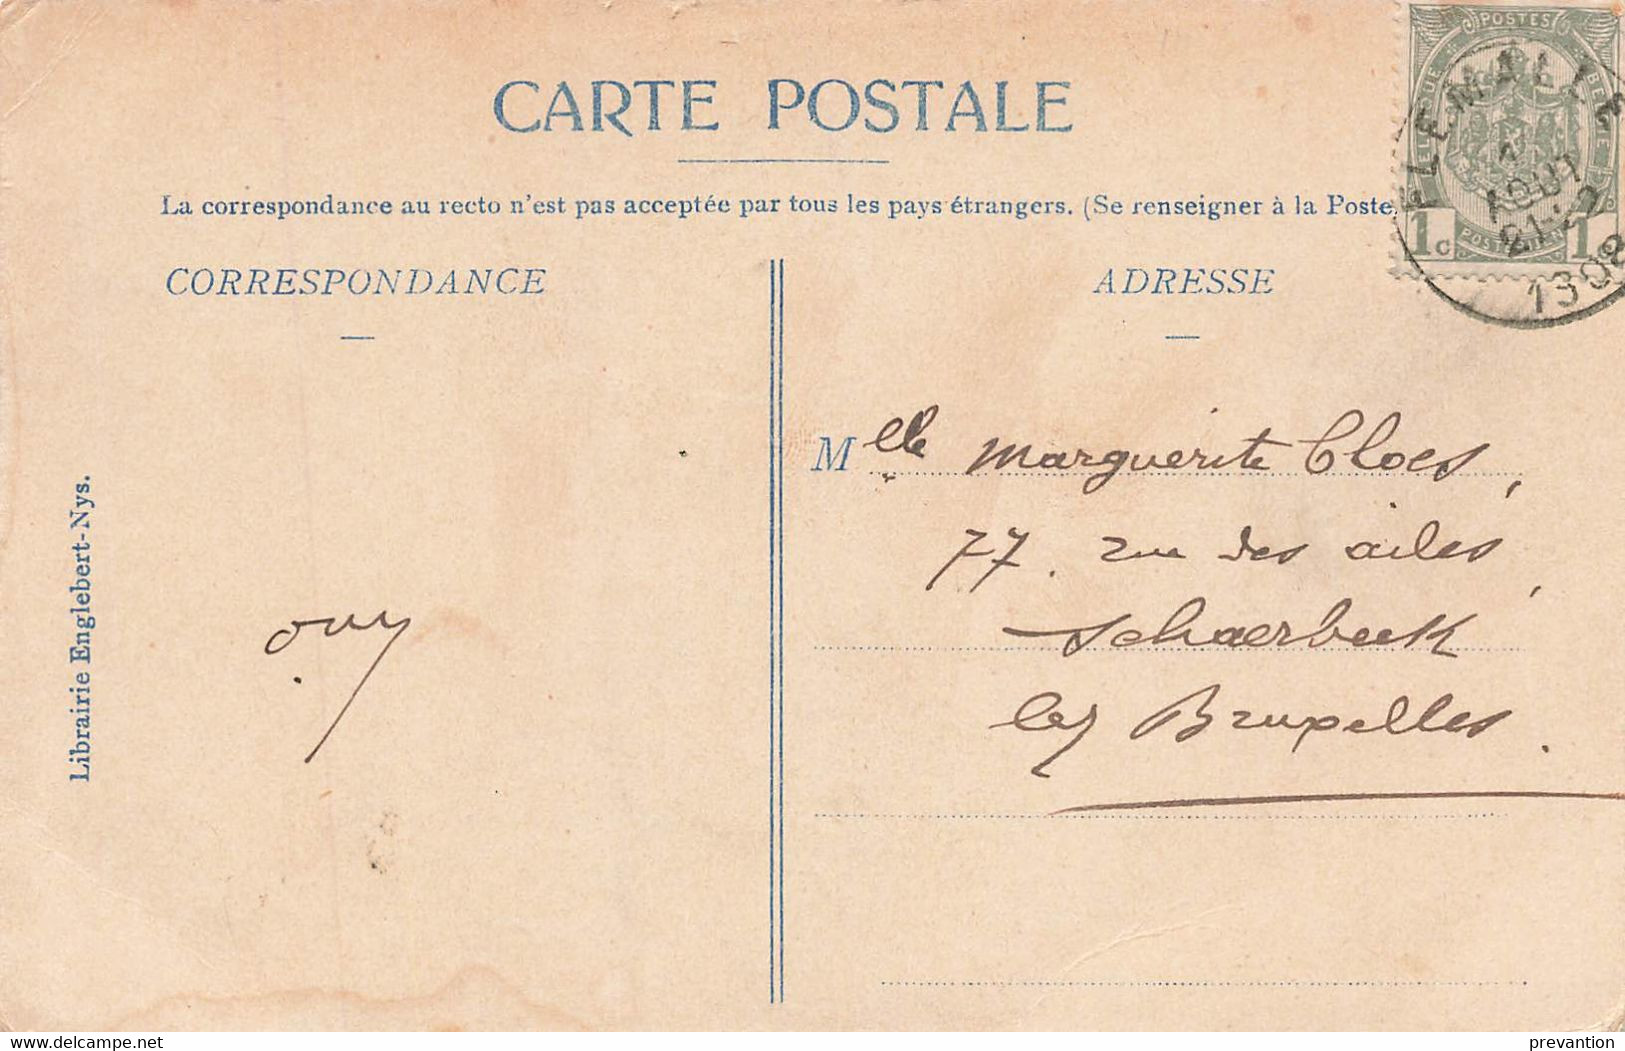 CARTE POSTALE
La correspondance au recto n'est pas acceptée par tous les pays étrangers. (Se renseigner à la Poste
CORRESPONDANCE
ADRESSE
POSTES
FLEMALLE
1
AOUT
21-22
1908
1c 1
Mlle Marguerite Cloes,
77. rue des ailes,
Schaerbeek
lez Bruxelles.
Librairie Englebert-Nys.
www.delcampe.net
prevantion